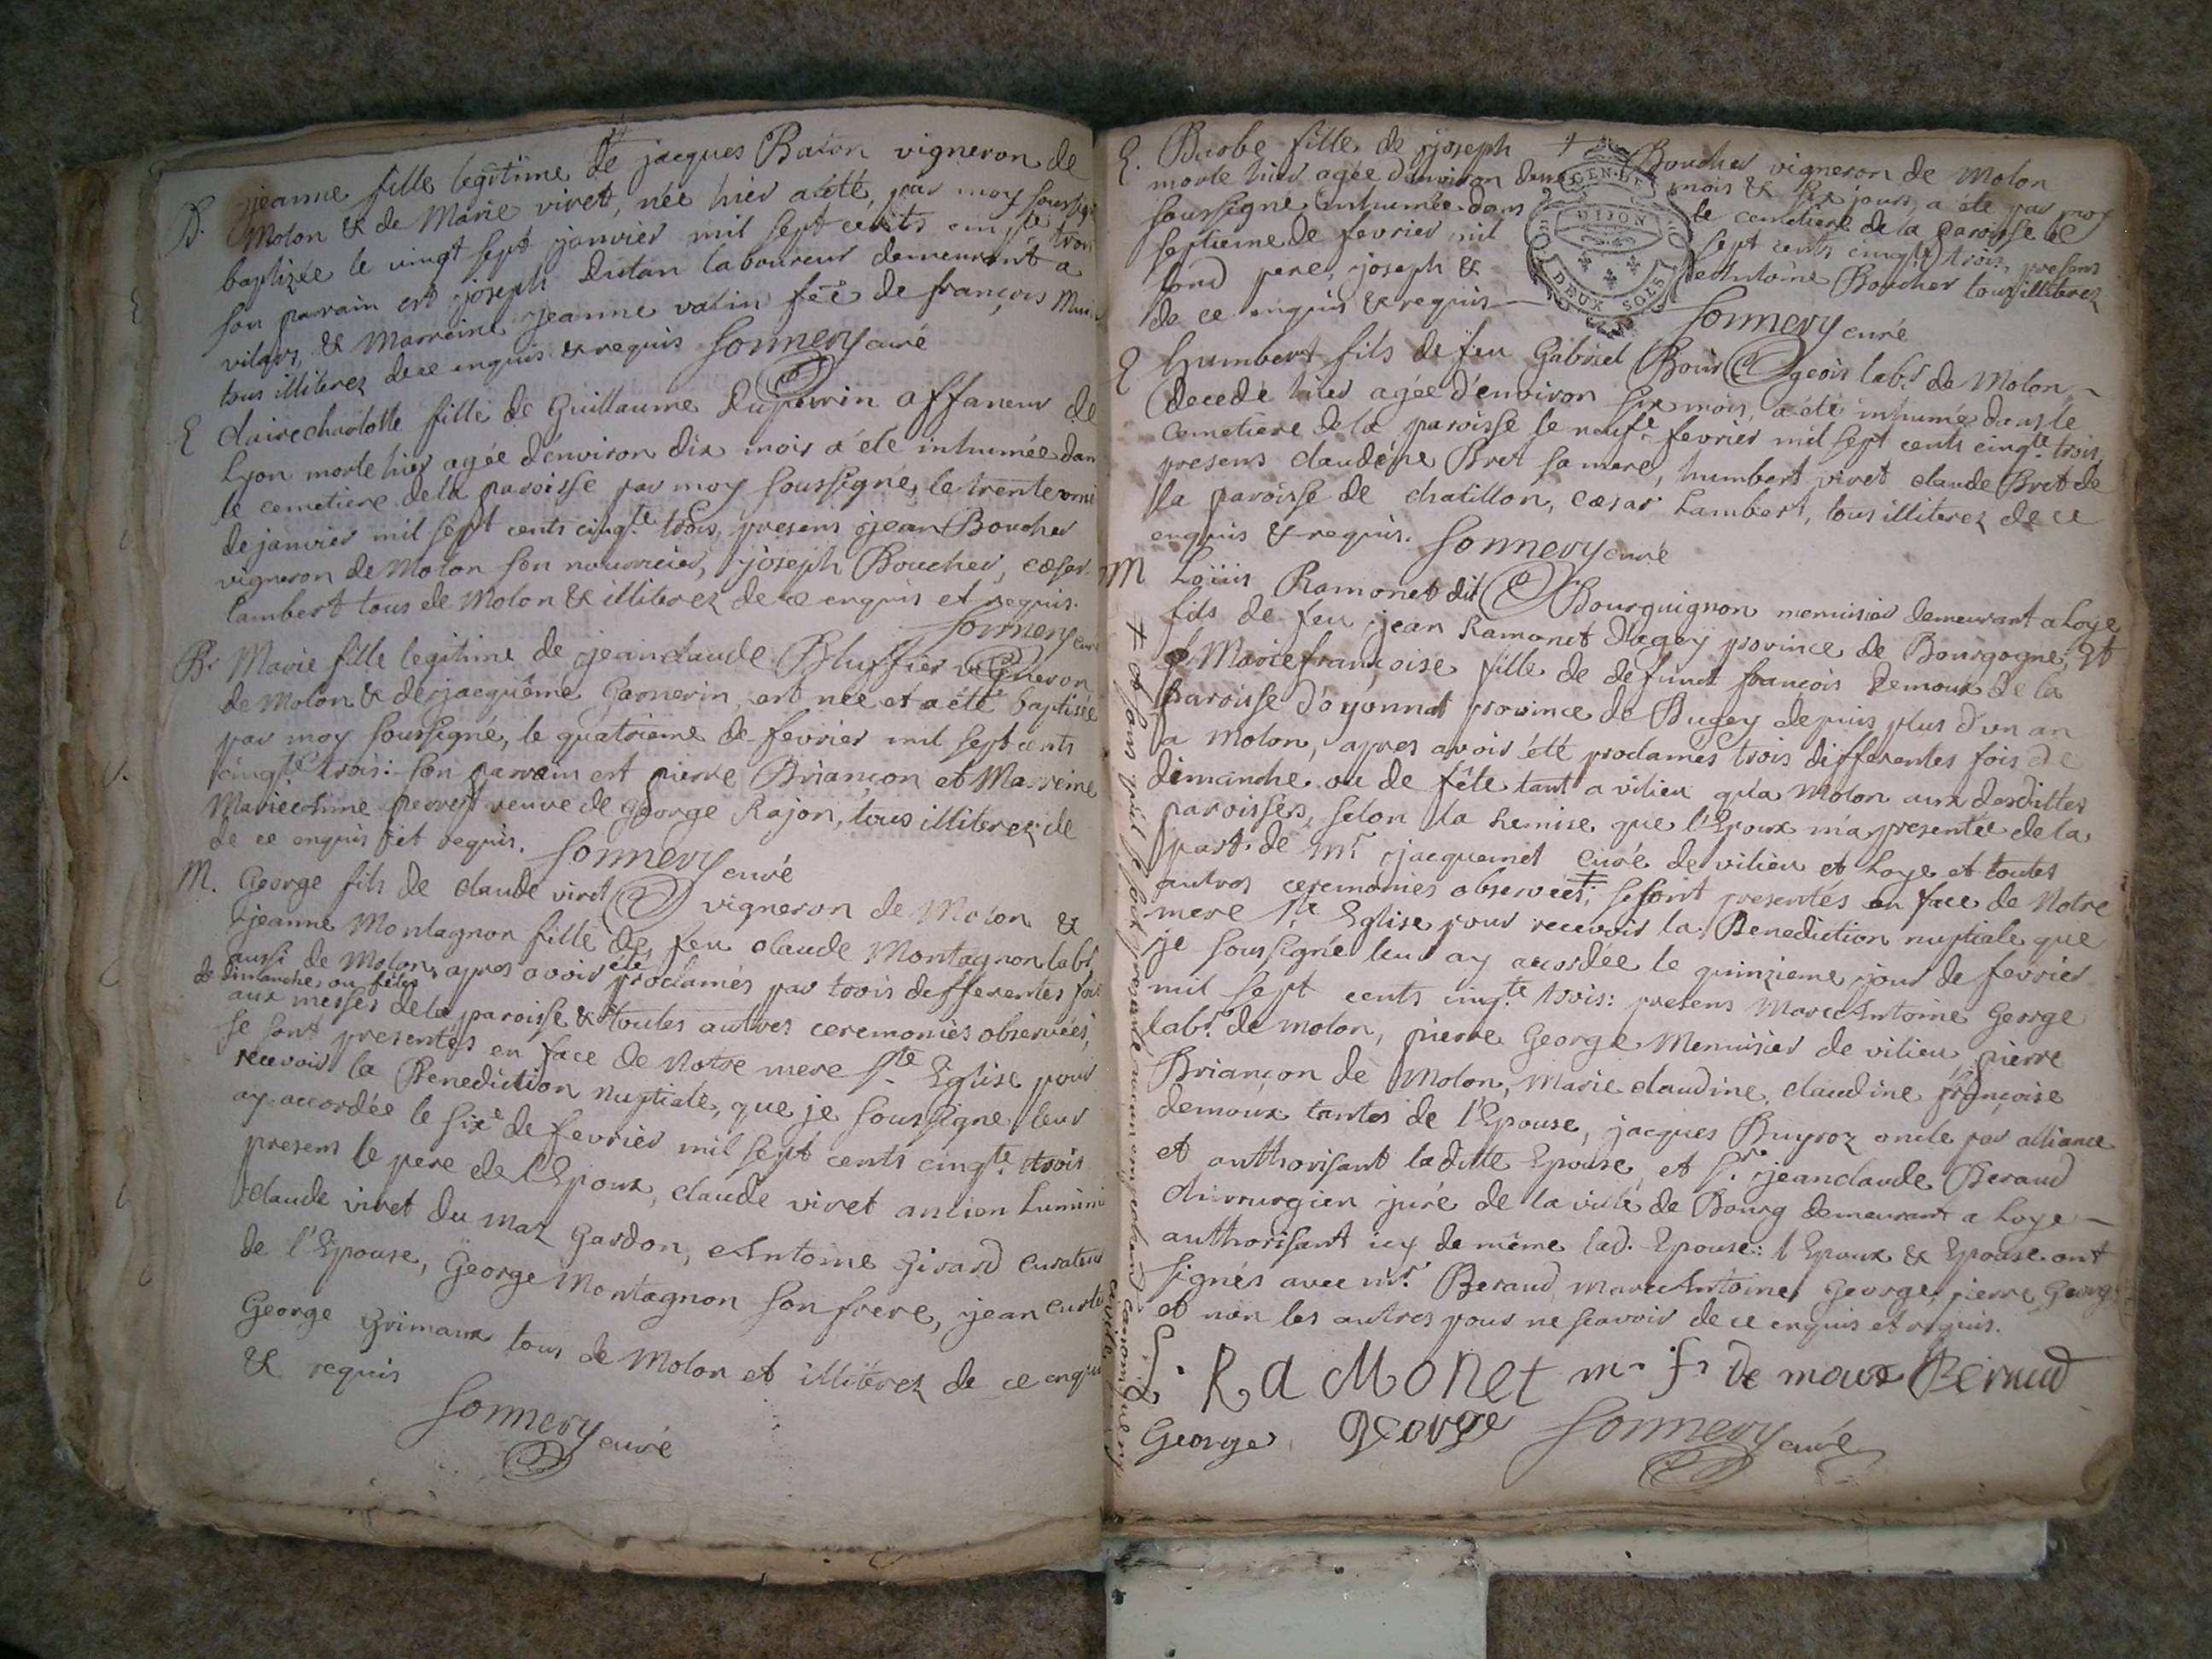 B. jeanne fille legitime de jacques Baton vigneron de
Molon & de Marie viret, née hier a été, par moy soussig
baptizée le vingt sept janvier mil sept cents cinq.te trois
son parrain est joseph Dutan laboureur demeurant a
vilars, & Marreine jeanne valin fẽe de françois
tous illiterez de ce enquis & requis Sonnery curé
E Claire charlotte fille de Guillaume Duperrin affaneur de
Lyon morte hier agée d'environ dix mois a été inhumée dan
le cemetiere de la paroisse par moy soussigné, le trente unie
de janvier mil sept cents cinq.te trois, presens jean Boucher
vigneron de Molon son nourricier, joseph Boucher, cæsar
Lambert tous de Molon & illiterez de ce enquis et requis.
Sonnery curé
B. Marie fille legitime de jeanclaude Bluffier vigneron
de Molon & de jacquême Garnerin, est née et a été baptisée
par moy soussigné, le quatrieme de fevrier mil sept cents
cinq.te trois: son parrain est pierre Briançon et Marreine
Marieanne perret veuve de george Rajon, tous illiterez de
de ce enquis et requis. Sonnery curé
M. George fils de claude viret vigneron de Molon &
jeanne Montagnon fille de feu claude Montagnon lab.r
aussi de Molon, apres avoir été proclamés par trois differentes fois
de dimanche ou fêtes
aux messes de la paroisse & toutes autres ceremonies observées,
se sont presentés en face de Notre mere S.te Eglise pour
recevoir la Benediction nuptiale, que je soussigné leur
ay accordée le six.e de fevrier mil sept cents cinq.te trois
presens le pere de l'Epoux, claude viret ancien Lumini
claude viret du maz Gardon, Antoine Girard curateur
de l'Epouse, George Montagnon son frere, jean
George Grimaux tous de Molon et illiterez de ce enquis
& requis
Sonnery curé
E. Barbe fille de joseph + Boucher vigneron de Molon
morte hier agée d'environ deux mois & six jours, a été par moy
soussigné inhumée dans le cemetiere de la paroisse le
septieme de fevrier mil sept cents cinq.te trois, presens
sond pere, joseph & Antoine Boucher tous illiterez
de ce enquis & requis Sonnery curé
GEN. DE DIJON
DEUX SOLS
E Humbert fils de feu Gabriel Bourgeois lab.r de Molon
decedé hier agée d'environ six mois, a été inhumé dans le
cemetiere de la paroisse le neuf.e fevrier mil sept cents cinq.te trois,
presens claudine Bret sa mere, humbert viret claude Bret de
la paroisse de chatillon, cæsar Lambert, tous illiterez de ce
enquis & requis. Sonnery curé
M Loüis Ramonet dit Bourguignon menuisier demeurant a Loye
fils de feu jean Ramonet d'agey province de Bourgogne, Et
Marie françoise fille de defunct francois Demoux de la
Paroisse d'oyonnat province de Bugey depuis plus d'un an
a Molon, apres avoir été proclamés trois differentes fois de
dimanche ou de fête tant a vilieu qu'a Molon aux desdittes
paroisses, selon la Remise que l'Epoux m'a presentée de la
part de m.r jacquemet curé de vilieu et Loye et toutes
autres ceremonies observées ‡, se sont presentés en face de Notre
mere S.te Eglise pour recevoir la Benediction nuptiale que
je soussigné leur ay accordée le quinzieme jour de fevrier
mil sept cents cinq.te trois: presens Marc Antoine George
lab.r de Molon, pierre George Menuisier de vilieu pierre
Briançon de Molon, Marie claudine, claudine françoise
demoux tantes de l'Epouse, jacques Buyroz oncle par alliance
et authorisant laditte Epouse, et S.r jeanclaude Beraud
chirurgien juré de la ville de Bourg demeurant a Loye
authorisant icy de même lad. Epouse: l'Epoux & Epouse ont
signés avec m.r Beraud Marc Antoine George, pierre George
et non les autres pour ne scavoir de ce enquis et requis.
L. RaMonet m.r f.s De moux Beraud
George George Sonnery curé
‡ et sans qu'il se soit presenté aucun empechement canonique ny
civile